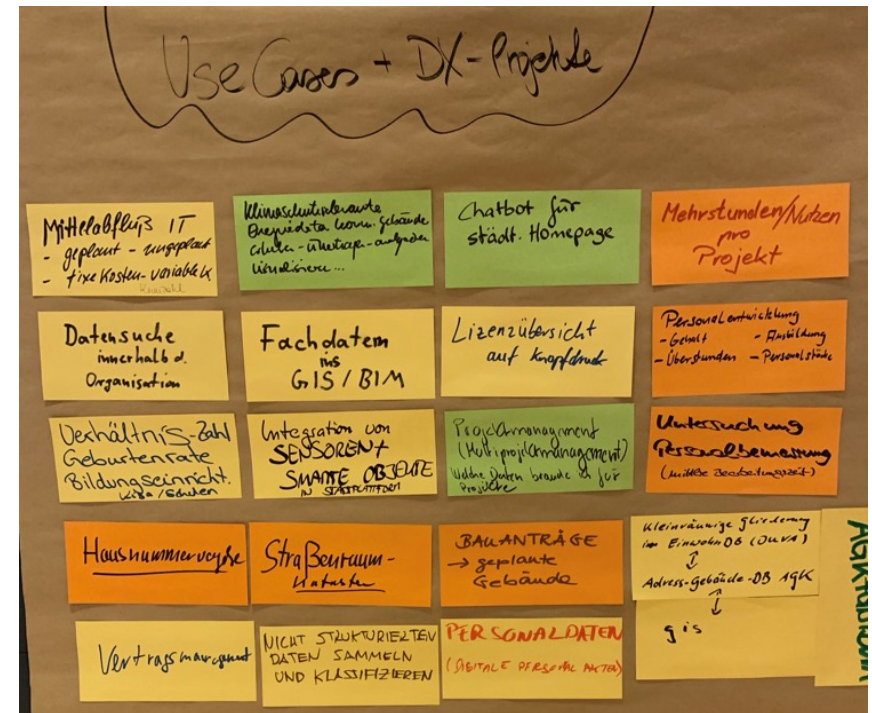 Use Cases + DX-Projekte
Mittelabfluß IT
- geplant - ungeplant
- fixe Kosten - variable K
Klimaschutzrelevante
kom. Gebäude
visualisieren...
Chatbot für
städt. Homepage
Mehrstunden/Nutzen
pro
Projekt
Datensuche
innerhalb d.
Organisation
Fachdaten
ins
GIS / BIM
Lizenzübersicht
auf Knopfdruck
Personalentwicklung
- Gehalt - Ausbildung
- Überstunden - Personalstärke
Verhältnis-Zahl
Geburtenrate
Bildungseinricht.
Kita/Schulen
Integration von
SENSOREN +
SMARTE OBJEKTE
IN STADTPLATTFORM
Projektmanagment
(Multiprojektmanagement)
Welche Daten brauche ich für
Projekte
Untersuchung
Personalbemessung
(mittlere Bearbeitungszeit)
Hausnummervergabe
Straßenraum-
kataster
BAUANTRÄGE
→ geplante
Gebäude
Kleinräumige Gliederung
im EinwohnDB (DUVA)
↕
Adress-Gebäude-DB AGK
↕
gis
Vertragsmanagment
NICHT STRUKTURIERTEN
DATEN SAMMELN
UND KLASSIFIZIEREN
PERSONALDATEN
(DIGITALE PERSONAL AKTEN)